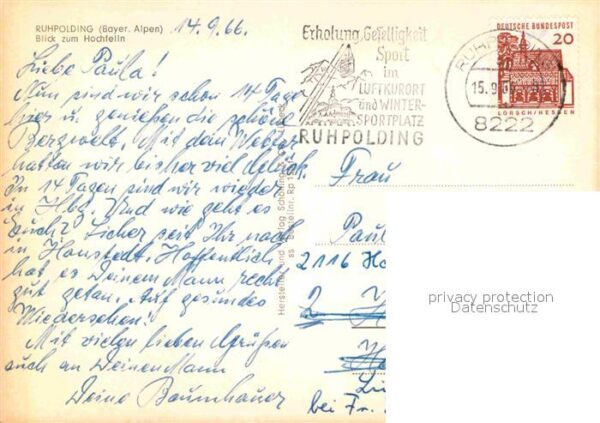 RUHPOLDING (Bayer. Alpen)
Blick zum Hochfelln
14.9.66.
Liebe Paula!
Nun sind wir schon 14 Tage
hier u. genießen die schöne
Bergwelt. Mit dem Wetter
hatten wir bisher viel Glück.
In 14 Tagen sind wir wieder
in Hbg. Und wie geht es
Euch? Sicher seit Ihr noch
in Hanstedt. Hoffentlich
hat es Deinem Mann recht
gut getan. Auf gesundes
Wiedersehen!
Mit vielen lieben Grüßen
auch an Deinen Mann
Deine Baumhauer
Hersteller und Verlag
Bestellnr. Rp
Erholung, Geselligkeit
Sport
im
LUFTKURORT
und WINTER-
SPORTPLATZ
RUHPOLDING
15.9.
8222
DEUTSCHE BUNDESPOST
20
LORSCH/HESSEN
Frau
Paul
2116 Ha
2
bei Fr.
privacy protection
Datenschutz